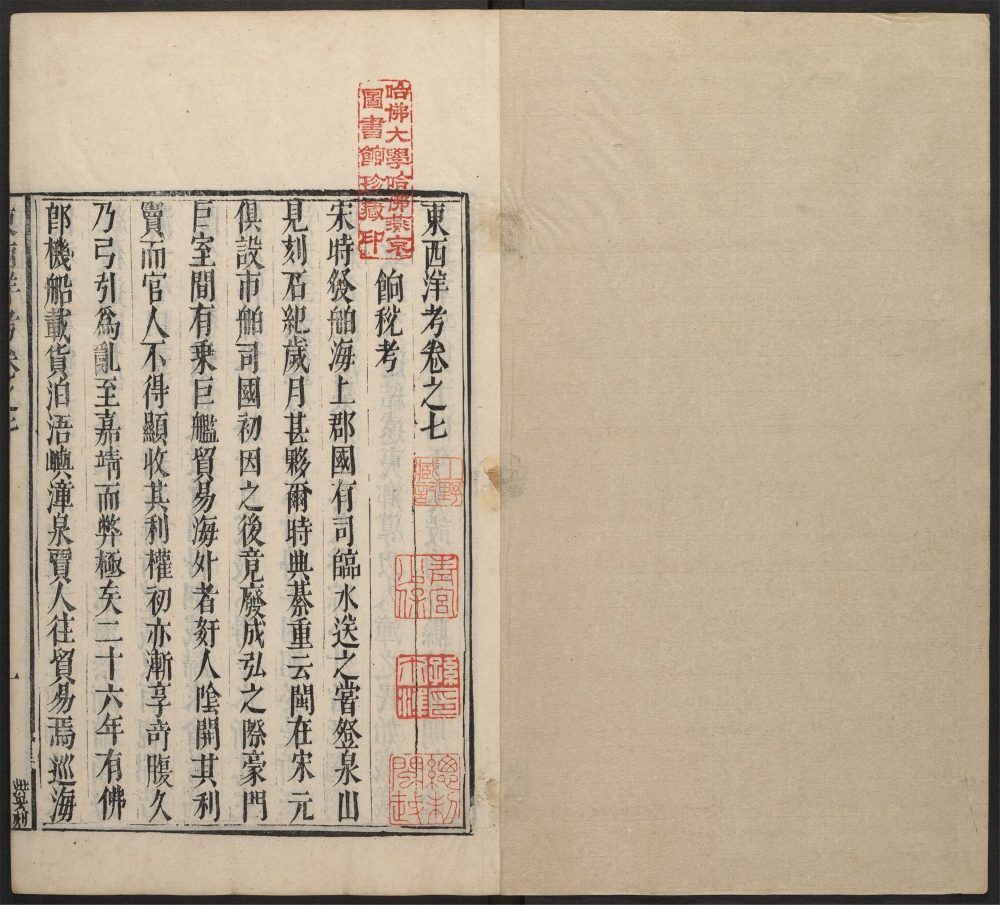 東西洋考卷之七
餉稅考
宋時發舶海上郡國有司臨水送之嘗登泉山
見刻石紀歲月甚夥爾時典綦重云閩在宋元
俱設市舶司國初因之後竟廢成弘之際豪門
巨室間有乗巨艦貿易海外者奸人陰開其利
竇而官人不得顯收其利權初亦漸享竒腹久
乃弓引爲亂至嘉靖而弊極矣二十六年有佛
郎機船載貨泊浯嶼漳泉賈人往貿易焉巡海
東西洋考 卷之七
一
哈佛大學哈佛燕京
圖書館珍藏印
青宮
少保
孫印
總制
閩越